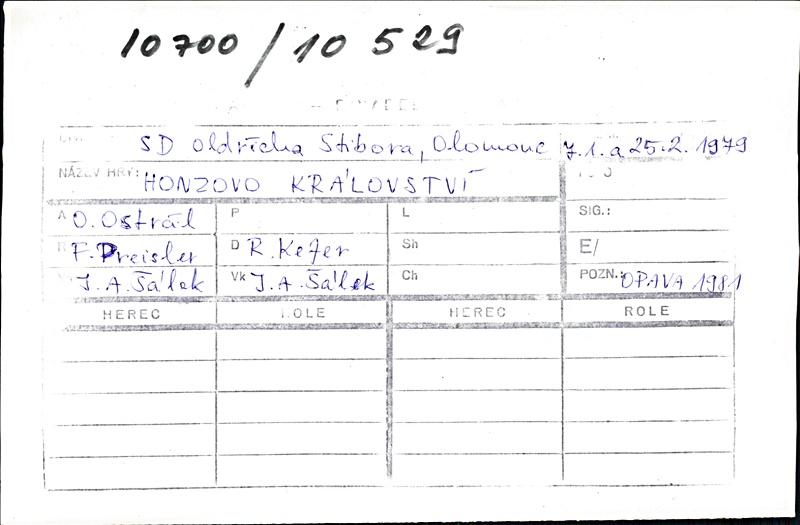 10700/10529
SD Oldřicha Stibora, Olomouc 7.1. a 25.2. 1979
NÁZEV HRY: HONZOVO KRÁLOVSTVÍ
A O. Ostrál P L SIG.:
R F. Preisler D R. Kefer Sh E/
J. A. Šálek Vk J. A. Šálek Ch POZN.: OPAVA 1981
HEREC ROLE HEREC ROLE